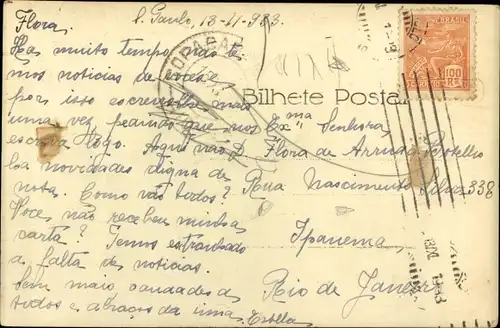 S. Paulo, 13-11-933.
Flora,
Ha muito tempo não te
mos noticias de voces e
por isso escrevo-lhe mais
uma vez pedindo que nos
escreva logo. Aqui não
ha novidades digna de
nota. Como vão todos?
Voce não recebeu minha
carta? Temos estranhado
a falta de noticias.
Sem mais saudades de
todos e abraços da irmã
Estella
Bilhete Postal
Exma Senhora
D. Flora de Arruda Botelho
Rua Nascimento Silva 338
Ipanema
Rio de Janeiro
BRASIL
100